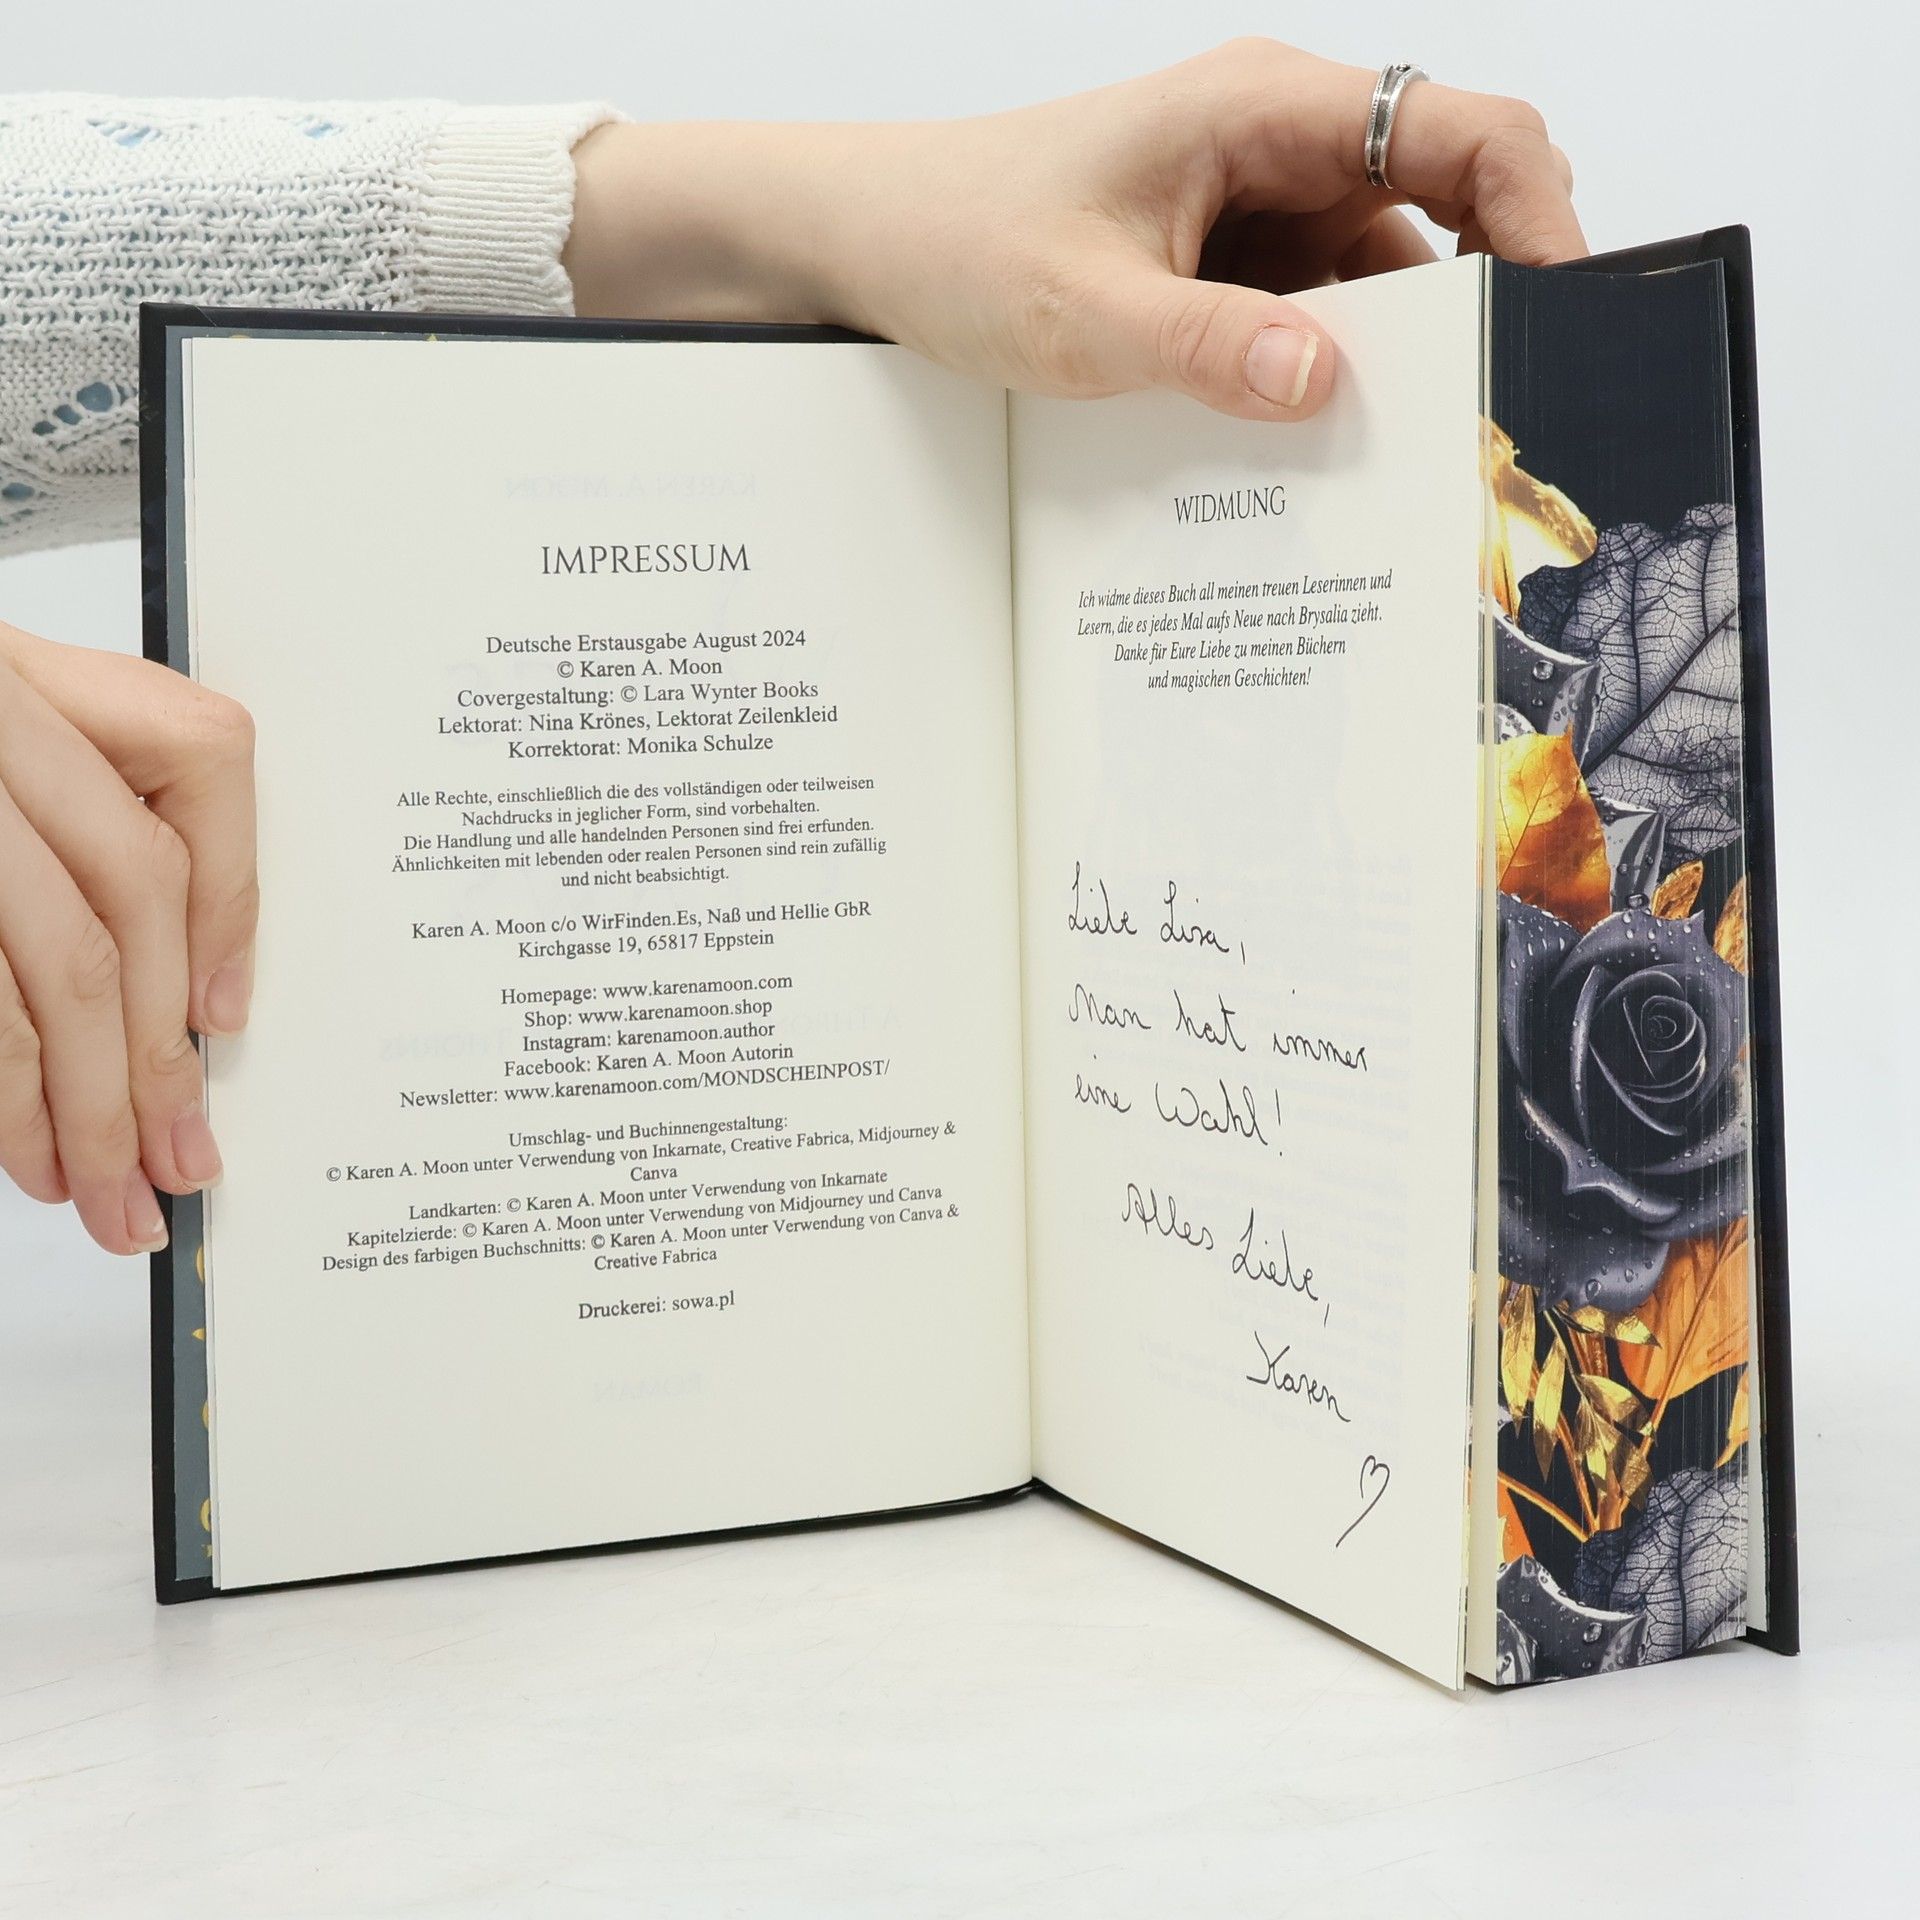 IMPRESSUM
Deutsche Erstausgabe August 2024
© Karen A. Moon
Covergestaltung: © Lara Wynter Books
Lektorat: Nina Krönes, Lektorat Zeilenkleid
Korrektorat: Monika Schulze
Alle Rechte, einschließlich die des vollständigen oder teilweisen
Nachdrucks in jeglicher Form, sind vorbehalten.
Die Handlung und alle handelnden Personen sind frei erfunden.
Ähnlichkeiten mit lebenden oder realen Personen sind rein zufällig
und nicht beabsichtigt.
Karen A. Moon c/o WirFinden.Es, Naß und Hellie GbR
Kirchgasse 19, 65817 Eppstein
Homepage: www.karenamoon.com
Shop: www.karenamoon.shop
Instagram: karenamoon.author
Facebook: Karen A. Moon Autorin
Newsletter: www.karenamoon.com/MONDSCHEINPOST/
Umschlag- und Buchinnengestaltung:
© Karen A. Moon unter Verwendung von Inkarnate, Creative Fabrica, Midjourney &
Canva
Landkarten: © Karen A. Moon unter Verwendung von Inkarnate
Kapitelzierde: © Karen A. Moon unter Verwendung von Midjourney und Canva
Design des farbigen Buchschnitts: © Karen A. Moon unter Verwendung von Canva &
Creative Fabrica
Druckerei: sowa.pl
WIDMUNG
Ich widme dieses Buch all meinen treuen Leserinnen und
Lesern, die es jedes Mal aufs Neue nach Brysalia zieht.
Danke für Eure Liebe zu meinen Büchern
und magischen Geschichten!
Liebe Lisa,
Man hat immer
eine Wahl!
Alles Liebe,
Karen